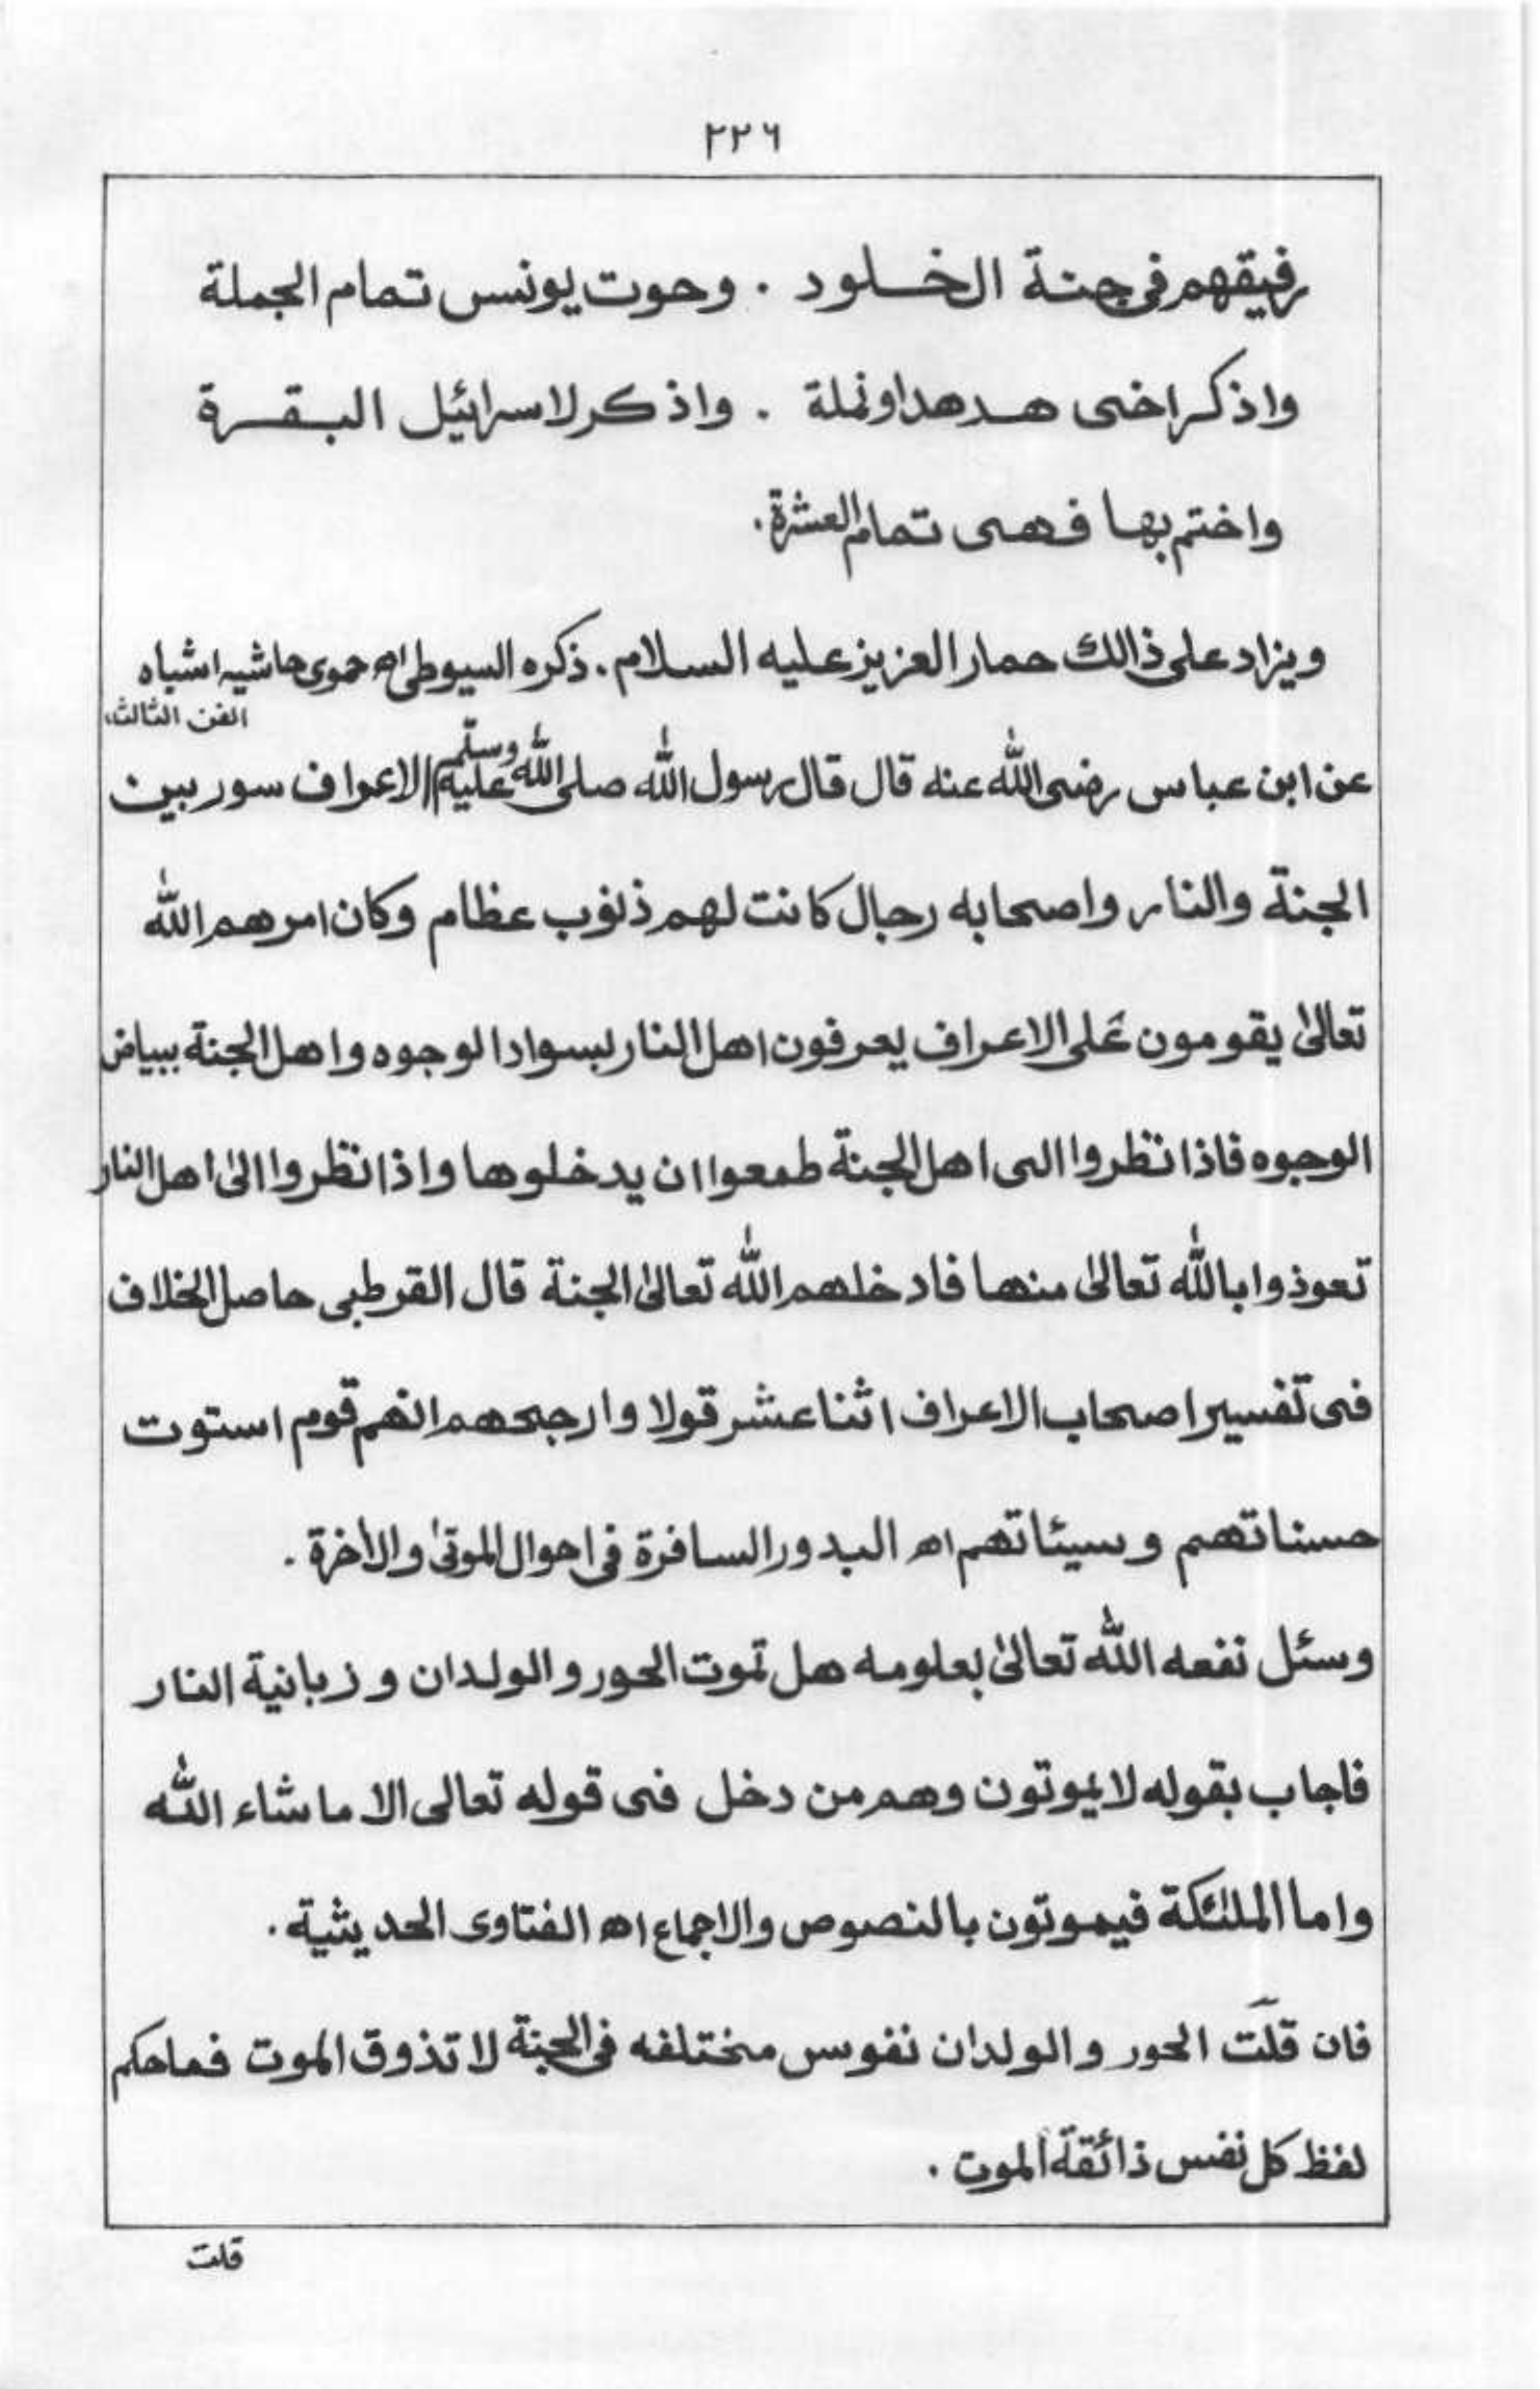 ٢٢٦
رفيقهم فى جنة الخلود . وحوت يونس تمام الجملة
واذكر اخى هدهدا ونملة . واذكر لاسرائيل البقرة
واختم بها فهى تمام العشرة .
ويزاد على ذالك حمار العزيز عليه السلام . ذكره السيوطى اھ حموى حاشيہ اشباہ
الفن الثالث،
عن ابن عباس رضى الله عنه قال قال رسول الله صلى الله عليه وسلم الاعراف سور بين
الجنة والنار واصحابه رجال كانت لهم ذنوب عظام وكان امرهم الله
تعالىٰ يقومون على الاعراف يعرفون اهل النار بسواد الوجوه واهل الجنة ببياض
الوجوه فاذا نظروا الى اهل الجنة طمعوا ان يدخلوها واذا نظروا الىٰ اهل النار
تعوذوا بالله تعالىٰ منها فادخلهم الله تعالىٰ الجنة قال القرطبى حاصل الخلاف
فى تفسير اصحاب الاعراف اثنا عشر قولا وارجحهم انهم قوم استوت
حسناتهم وسيئاتهم اھ البدور السافرة فى احوال الموتىٰ والاٰخرة .
وسئل نفعه الله تعالىٰ بعلومه هل تموت الحور والولدان وزبانية النار
فاجاب بقوله لا يموتون وهم من دخل فى قوله تعالى الا ما شاء الله
واما الملئكة فيموتون بالنصوص والاجماع اھ الفتاوى الحديثية .
فان قلت الحور والولدان نفوس مختلفه فى الجنة لا تذوق الموت فما حكم
لفظ كل نفس ذائقة الموت .
قلت